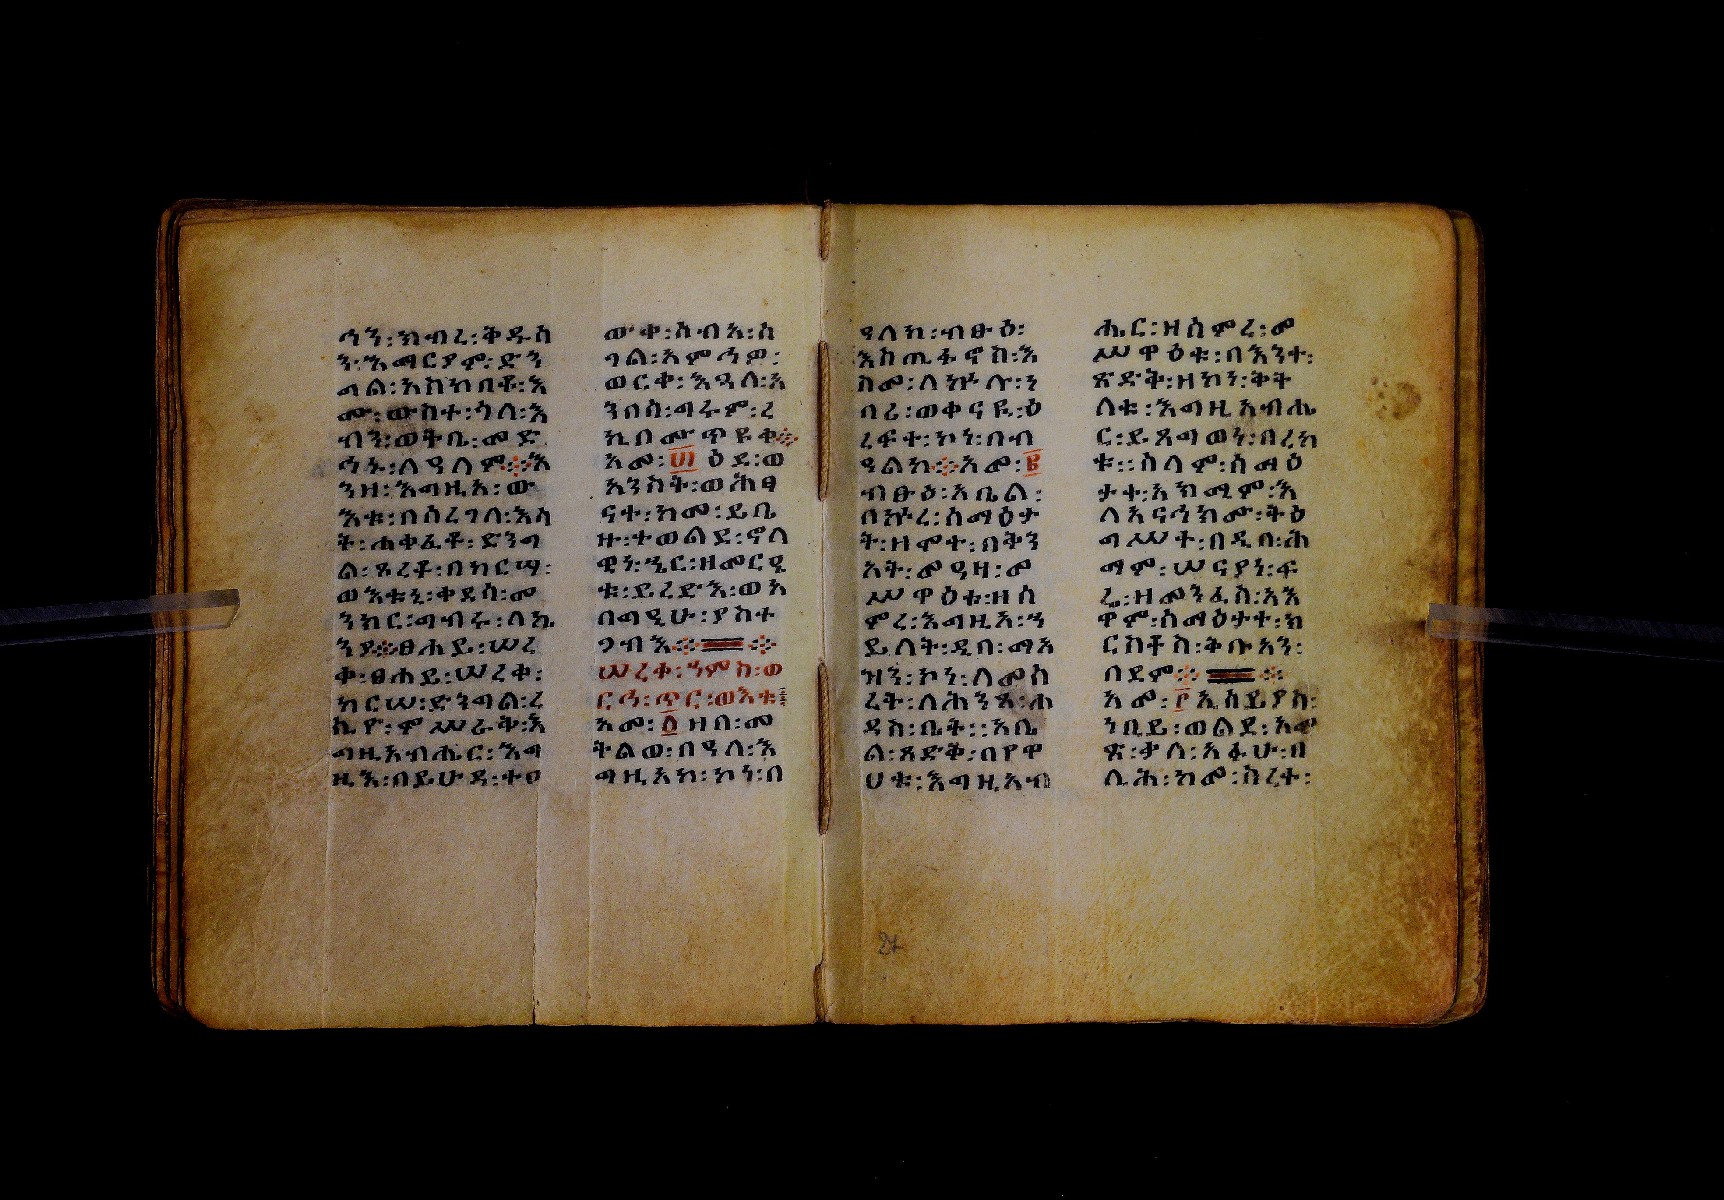 ኅን፡ክብረ፡ቅዱስ
ን፡ማርያም፡ድን
ግል፡እስከበቶ፡እ
ሙ፡ውስተ፡ጎለ፡እ
ብን፡ወትቤ፡መድ
ኅኑ፡ለዓለም፨እ
ንዘ፡እግዚአ፡ው
እቱ፡በሰረገለ፡እሳ
ት፡ሐቀፈቶ፡ድንግ
ል፡ጾረቶ፡በከርሣ፡
ወእቱኒ፡ቀደሰ፡መ
ንክር፡ግብሩ፡ላኪ
ንየ፨ፀሐይ፡ሠረ
ቀ፡ፀሐይ፡ሠረቀ፡
ክርሠ፡ድንግል፡ረ
ኪዮ፡ምሥራቅ፡እ
ግዚአብሔር፡እግ
ዚእ፡በይሁዳ፡ተዐ
ውቀ፡ሰብአ፡ሰ
ገል፡አምኅዎ፡
ወርቀ፡እዓለ፡አ
ንበሰ፡ግሩም፡ረ
ኪቦሙጥዩቀ፨
አመ፡፲ዕደ፡ወ
አንስት፡ወሕፃ
ናተ፡ከመ፡ይቤ
ዙ፡ተወልደ፡ኖላ
ዊነ፡ኄር፡ዘመርዔ
ቱ፡ይረድእ፡ወአ
በግዒሁ፡ያስተ
ጋብእ፨
ሠረቀ፡ዓምስ፡ወ
ርኅ፡ጥር፡ወእቱ፡
አመ፡፩ዘበ፡መ
ትልወ፡በዓለ፡እ
ግዚአከ፡ኮነ፡በ
ዓለከ፡ብፁዕ፡
እስጢፋኖስ፡እ
ስመ፡ለኵሉ፡ን
በረ፡ወቀናዪ፡ዕ
ረፍተ፡ኮነ፡በብ
ዓልከ፨አመ፡፪
ብፁዕ፡አቤል፡
በኵረ፡ሰማዕታ
ት፡ዘሞተ፡በቅን
አት፡መዓዛ፡መ
ሥዋዕቱ፡ዘሰ
ምረ፡እግዚአ፡ኀ
ይላት፡ዲበ፡ማእ
ዝን፡ኮነ፡ለመሰ
ረት፡ለሕንጻ፡ሐ
ዳስ፡ቤት፡፡አቤ
ል፡ጻድቅ፡በየዋ
ሀቱ፡እግዚአብ
ሔር፡ዘሰምረ፡መ
ሥዋዕቱ፡በእንተ፡
ጽድቅ፡ዘኮነ፡ቅት
ለቱ፡እግዚአብሔ
ር፡ይጸግወነ፡በረከ
ቱ፡፡ሰላም፡ሰማዕ
ታተ፡አኽሚም፡እ
ለአናኅክሙ፡ትዕ
ግሥት፡በዲበ፡ሕ
ማም፡ሠናያነ፡ፍ
ሬ፡ዘመንፈስ፡አእ
ዋም፡ሰማዕታተ፡ክ
ርስቶስ፡ቅቡአን፡
በደም፨
አመ፡፫ኢሰይያስ፡
ንቢይ፡ወልደ፡አሞ
ጽ፡ቃለ፡አፉሁ፡በ
ሊሕ፡ከመ፡ስረት፡